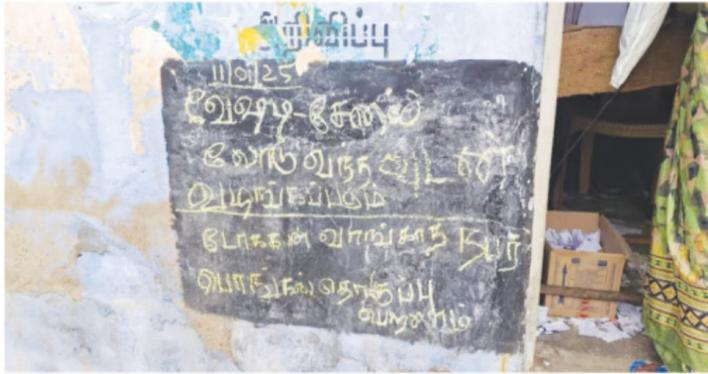 அறிவிப்பு
11/01/25
வேஷ்டி - சேலை
லோடு வந்த வுடன்
வழங்கப்படும்
டோக்கன் வாங்காத நபர்
பொங்கல் தொகுப்பு
பெறலாம்